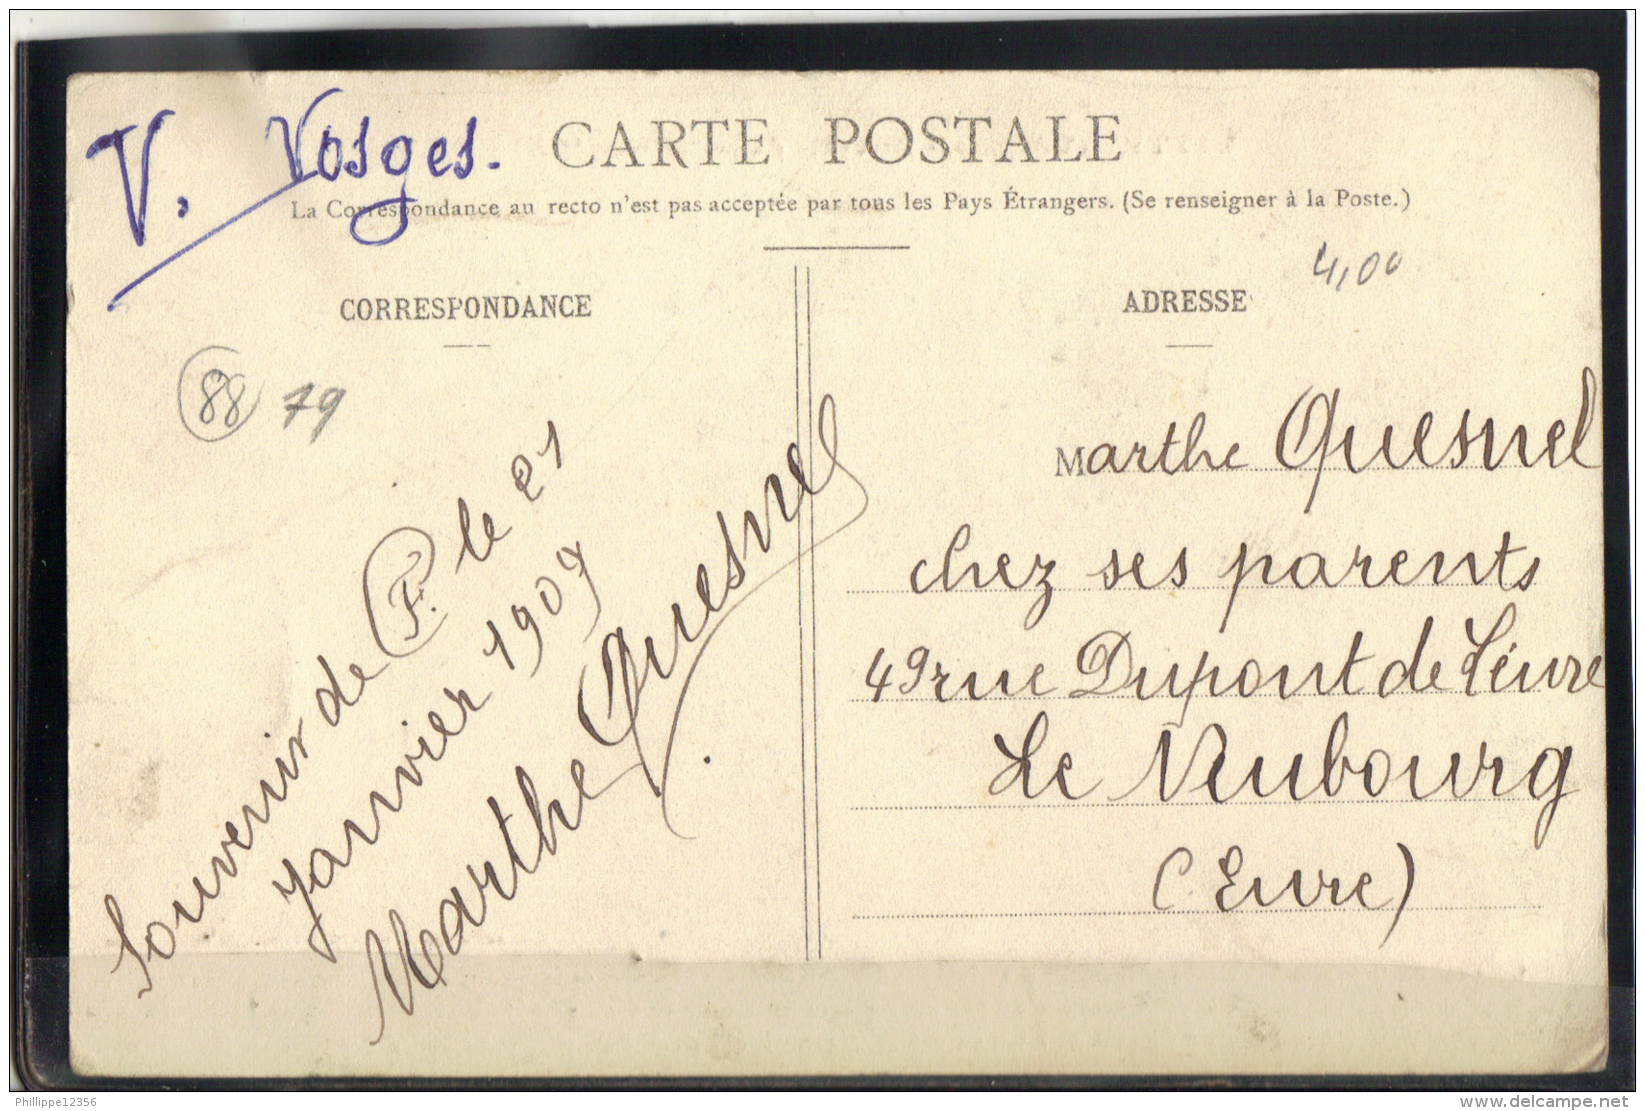 V. Vosges.
CARTE POSTALE
La Correspondance au recto n'est pas acceptée par tous les Pays Étrangers. (Se renseigner à la Poste.)
CORRESPONDANCE
88 79
Souvenir de F. le 21
Janvier 1909
Marthe Quesnel
ADRESSE
4,00
Marthe Quesnel
chez ses parents
49 rue Dupont de l'éure
Le Neubourg
(Eure)
Philippe12356
www.delcampe.net